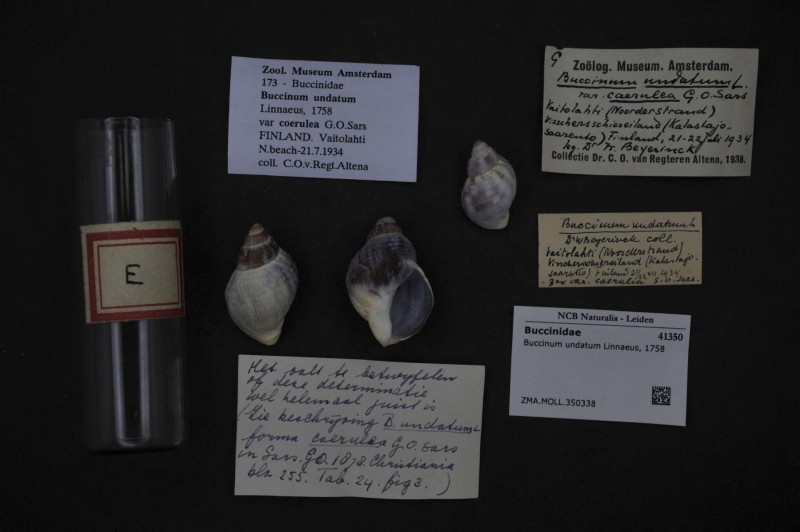 Zool. Museum Amsterdam
173 - Buccinidae
Buccinum undatum
Linnaeus, 1758
var coerulea G.O.Sars
FINLAND. Vaitolahti
N.beach-21.7.1934
coll. C.O.v.Regt.Altena
9 Zoölog. Museum. Amsterdam.
Buccinum undatum L.
var. caerulea G.O.Sars
Vaitolahti (Noorderstrand)
Visschersschiereiland (Kalastajo-
saarento) Finland, 21-22 Juli 1934
leg. Dr W. Beyerinck
Collectie Dr. C. O. van Regteren Altena, 1938.
E
Buccinum undatum L
Dr W Beyerinck coll.
Vaitolahti (Noorderstrand)
Visscherschiereiland (Kalastajo-
saarento) Finland 21/22 VII 1934
var. caerulea G.O. Sars.
NCB Naturalis - Leiden
Buccinidae 41350
Buccinum undatum Linnaeus, 1758
ZMA.MOLL.350338
Het valt te betwyfelen
of deze determinatie
wel helemaal juist is
(zie beschrijving B. undatum L
forma caerulea G.O. Sars
in Sars. G.O. 1878. Christiania
blz 255. Tab. 24. fig 3. )